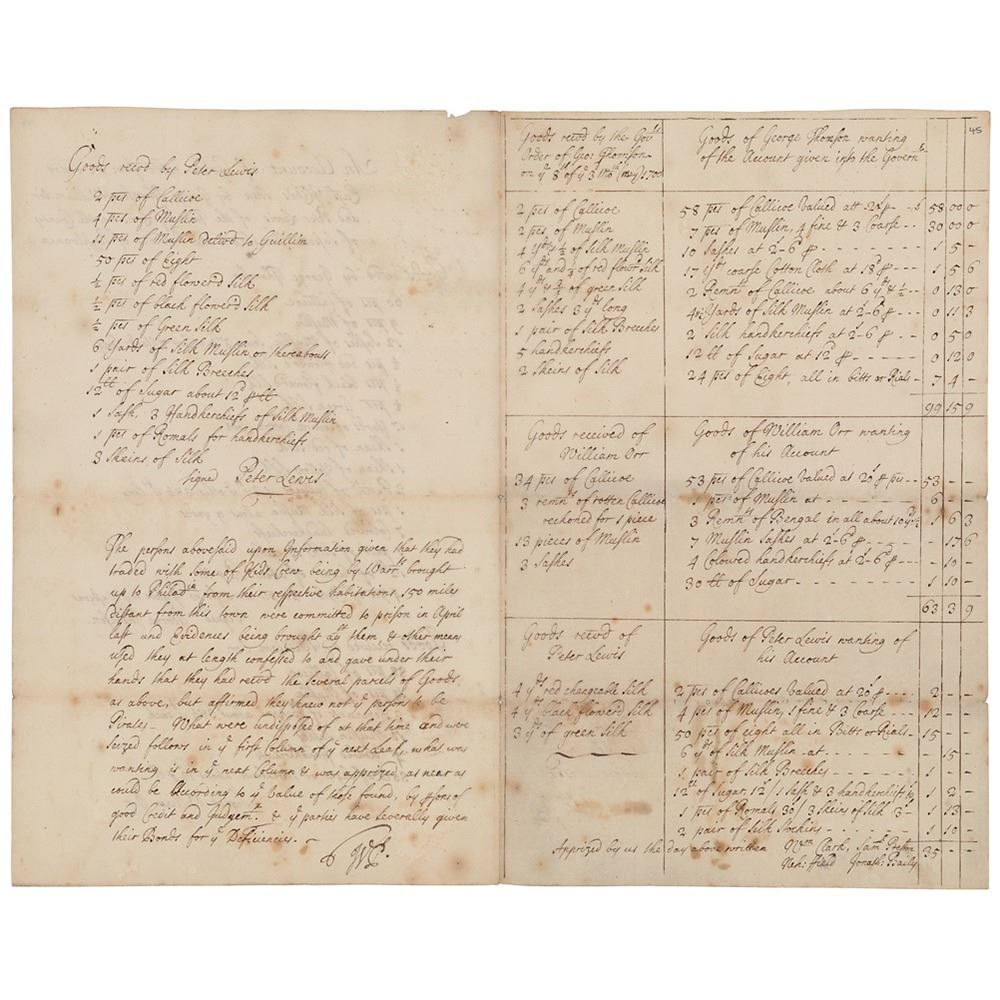 Goods recvd by Peter Lewis
2 pes of Callicoe
4 pes of Muslin
11 pes of Muslin deliv'd to Guillim
50 pes of Eight
½ pes of red flower'd Silk
½ pes of black flower'd Silk
½ pes of Green Silk
6 Yards of Silk Muslin or thereabouts
1 pair of Silk Breeches
12 tt of Sugar about 12d ⅌ tt
1 Sash, 3 Handkerchiefs of Silk Muslin
1 pes of Romals for handkerchiefs
3 Skeins of Silk
Signed Peter Lewis
The persons abovesaid upon Information given that they had
traded with some of Kids Crew being by Warrts brought
up to Philada from their respective habitations 150 miles
distant from this town were committed to prison in April
last and Evidences being brought agt them, & other means
used they at length confessed to and gave under their
hands that they had recvd the several parcels of Goods
as above, but affirmed they knew not ye persons to be
Pirates. What were undisposed of at that time and were
seized follows in ye first Column of ye next Leaf, what was
wanting is in ye next Column & was apprized as near as
could be According to ye Value of those found, by psons of
good Credit and Judgemt. & ye parties have severally given
their Bonds for ye Deficiencies.
WP.
45
Goods recvd by the Govrs
Order of Geo: Thomson
on ye 8th of ye 3 mo (may) 1700
2 pes of Callicoe
2 pes of Muslin
4 yds & ½ of Silk Muslin
6 yds and ½ of red flowr Silk
4 yds & ¾ of green Silk
2 Sashes 3 yds long
1 pair of Silk Breeches
5 handkerchiefs
2 Skeins of Silk
Goods of George Thomson wanting
of the Account given into the Governr
58 pes of Callicoe Valued att 20s ⅌ - - 58 00 0
7 pes of Muslin, 4 fine & 3 Coarse - - 30 00 0
10 Sashes at 2s-6d ⅌ - - - - 1 5 -
17 yds coarse Cotton Cloth at 18d ⅌ - - - 1 5 6
2 Remnts of Callicoe about 6 yds & ½ - - 0 13 0
4½ Yards of Silk Muslin at 2s-6d ⅌ - - - 0 11 3
2 Silk handkerchiefs at 2s-6d ⅌ - - - 0 5 0
12 tt of Sugar at 12d ⅌ - - - - - - 0 12 0
24 pes of Eight, all in bitts or Rials - 7 4 -
99 15 9
Goods received of
William Orr
34 pes of Callicoe
3 remnts of rotten Callicoe
reckoned for 1 piece
13 pieces of Muslin
3 Sashes
Goods of William Orr wanting
of his Account
53 pes of Callicoe Valued at 20s ⅌ pes - - 53 - -
1 pes of Muslin at - - - - - - - 6 - -
3 Remnts of Bengal in all about 10 yds ½ 1 6 3
7 Muslin Sashes at 2-6d ⅌ - - - - 17 6
4 Coloured handkerchiefs at 2s-6d ⅌ - - 10 -
30 tt of Sugar - - - - - - - 1 10 -
63 3 9
Goods recvd of
Peter Lewis
4 yds red changeable Silk
4 yds black flower'd Silk
3 yds of green Silk
Goods of Peter Lewis wanting of
his Account
2 pes of Callicoes Valued at 20s ⅌ - - - - 2 - -
4 pes of Muslin, 1 fine & 3 Coarse - - - 12 - -
50 pes of eight all in Bitts or Rials - 15 - -
6 yds of Silk Muslin at - - - - - - - 15 -
1 pair of Silk Breeches - - - - - - - 1 - -
12 tt of Sugar, 12s, 1 Sash & 3 handkerchiefs 1 2 -
1 pes of Romals 30s/ 3 Skeins of Silk 3s - 1 13 -
2 pair of Silk Stockins - - - - - - 1 10 -
Apprized by us the day above written Wm Clark, Saml Preston 35 - -
Neh: Field Jonath: Baily